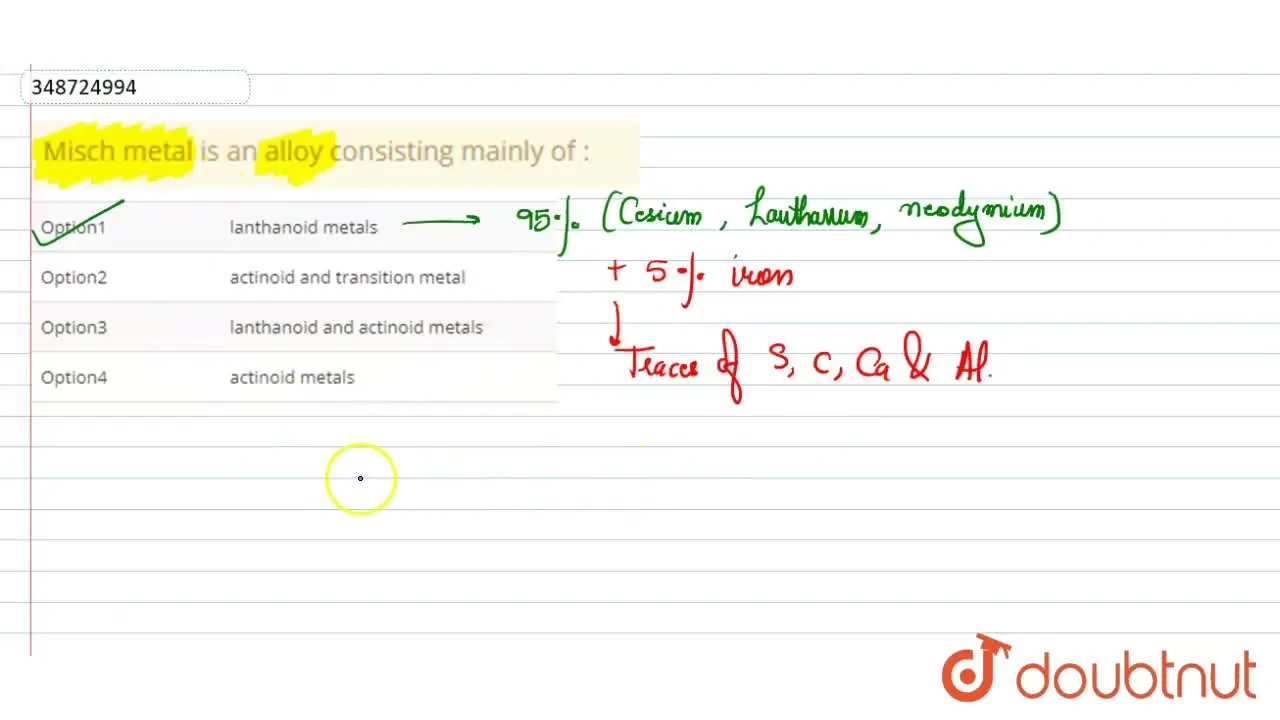 348724994
Misch metal is an alloy consisting mainly of :
Option1 lanthanoid metals → 95% (Cesium, Lanthanum, neodymium)
Option2 actinoid and transition metal + 5% iron
Option3 lanthanoid and actinoid metals
Traces of S, C, Ca & Al.
Option4 actinoid metals
doubtnut